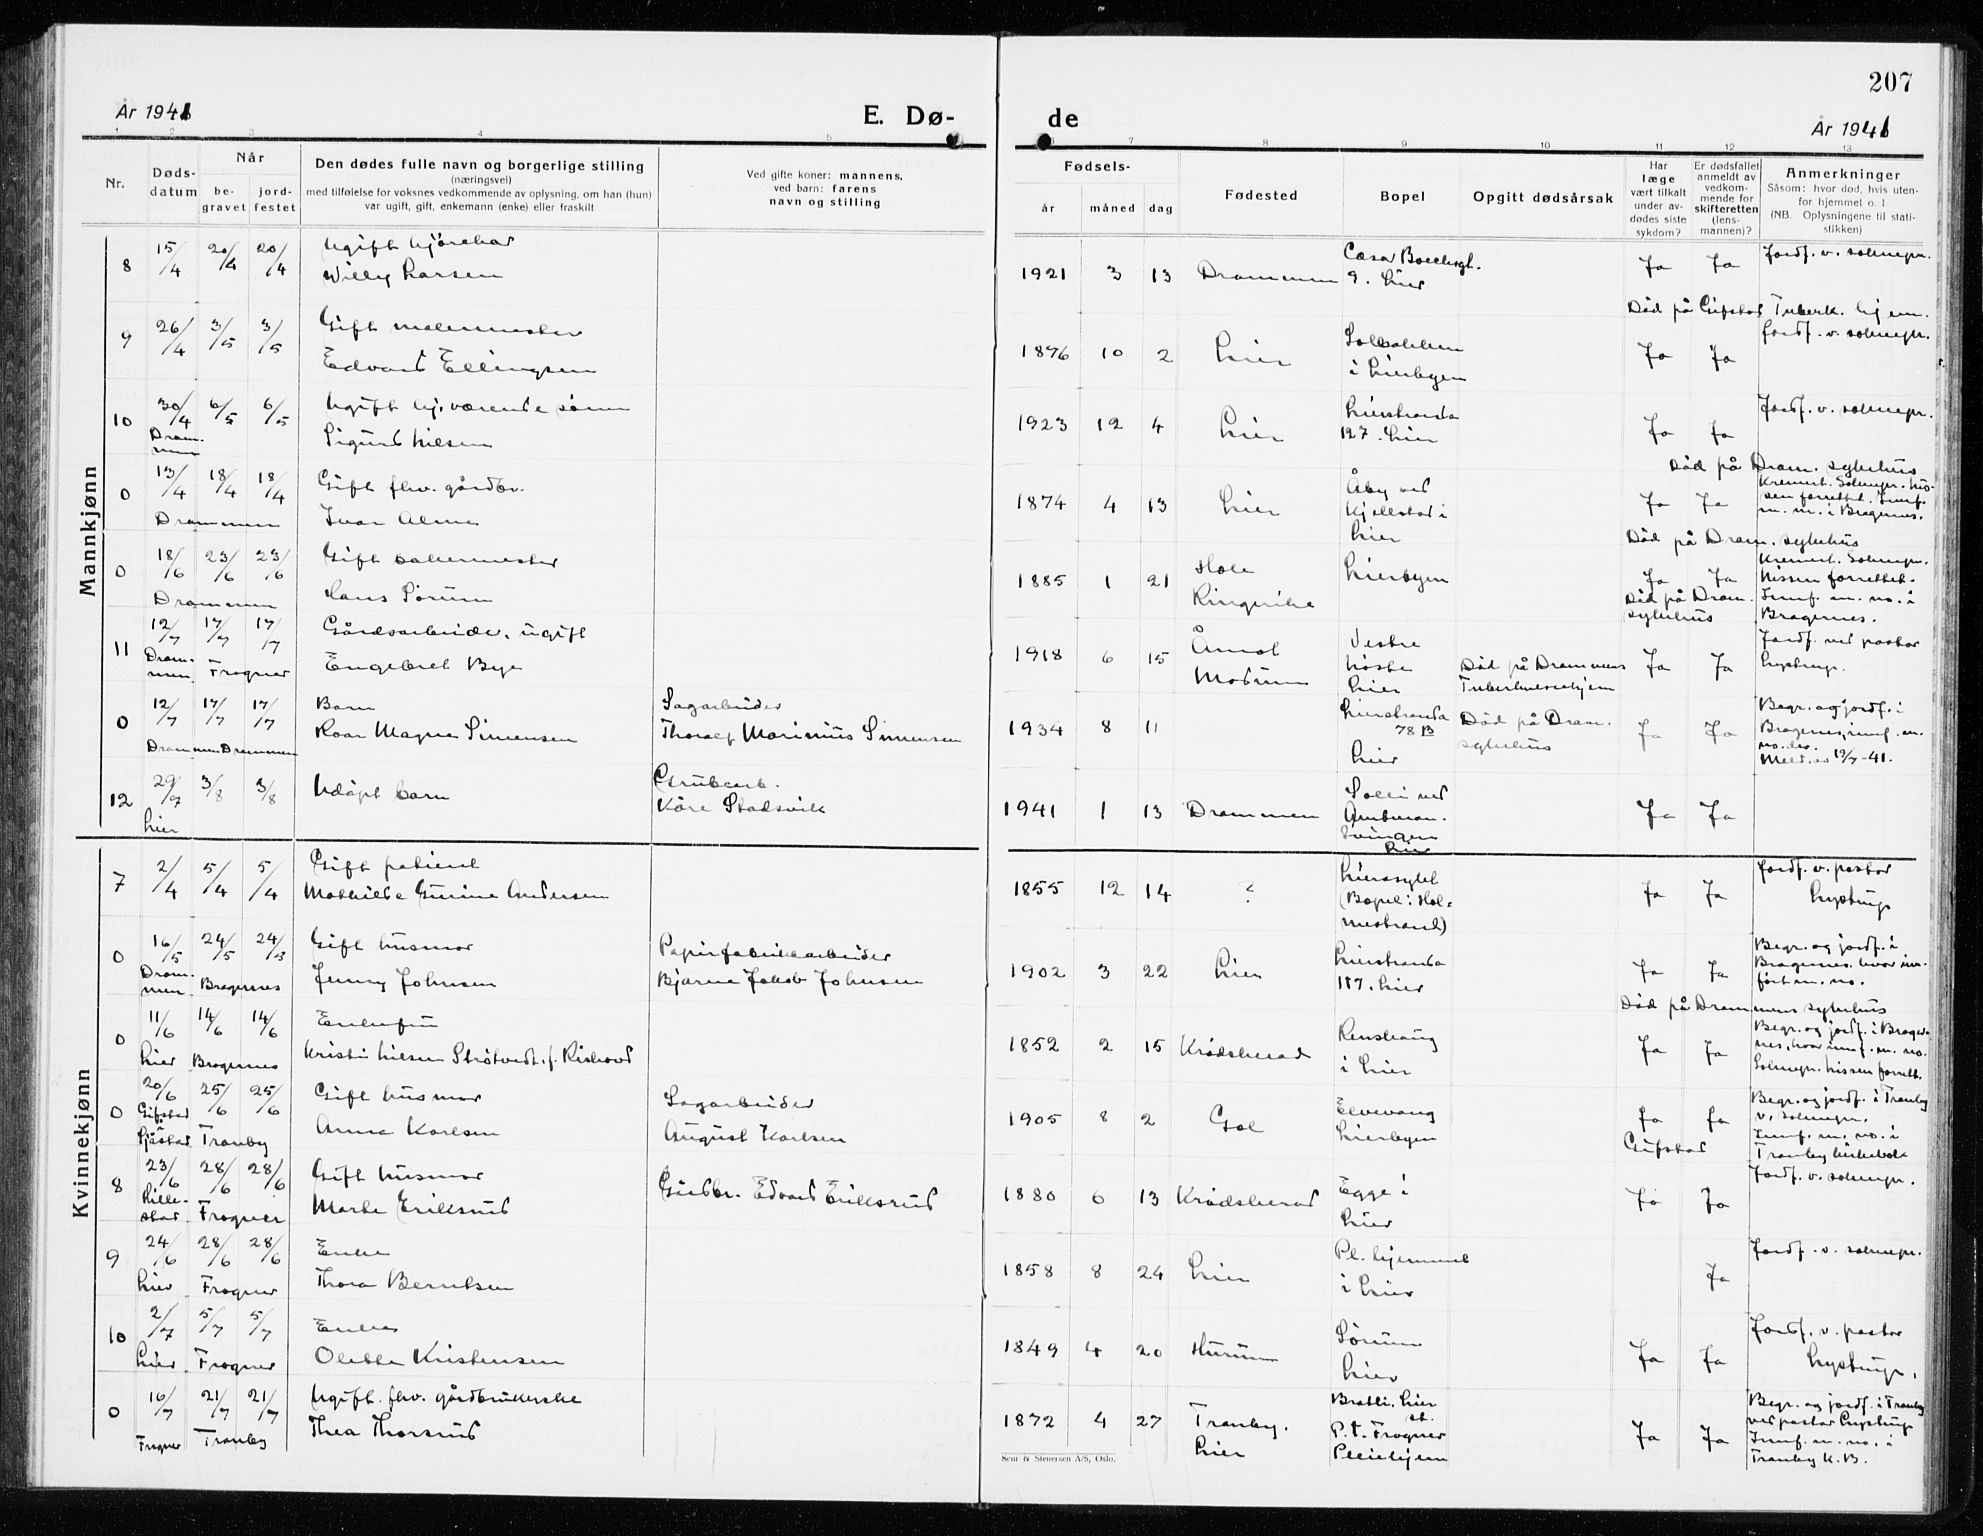 207
År 1941
E. Dø-
de
År 1941
1 2 3 4 5
7 8 9 10 11 12 13
Nr.
Døds-
datum
Når
be-
gravet
jord-
festet
Den dødes fulle navn og borgerlige stilling
(næringsvei)
med tilføielse for voksnes vedkommende av oplysning, om han (hun)
var ugift, gift, enkemann (enke) eller fraskilt
Ved gifte koner: mannens,
ved barn: farens
navn og stilling
Fødsels-
år
måned
dag
Fødested
Bopel
Opgitt dødsårsak
Har
læge
vært tilkalt
under av-
dødes siste
sykdom?
Er dødsfallet
anmeldt av
vedkom-
mende for
skifteretten
(lens-
mannen)?
Anmerkninger
Såsom: hvor død, hvis uten-
for hjemmet o. l
(NB. Oplysningene til stati-
stikken)
Mannkjønn
8 15/4 20/4 20/4 Ugift
Willy Larsen
1921 3 13 Drammen
9. Lier
Ja Ja Jordf. v. sognepr.
Død på Gifstad Tuberk. hjem.
9 26/4 3/5 3/5 Gift malermester
Edvard Ellingsen
1896 10 2 Lier
i Lierbyen
Ja Ja Jordf. v. sognepr.
10 30/4 6/5 6/5 Ugift hj. værende sønn
Dram-
men
Sigurd Nilsen
1923 12 4 Lier Lierstranda
127. Lier
Ja Ja Jordf. v. sognepr.
Død på Dram. sykehus
0 13/4 18/4 18/4 Gift fhv. gårdbr.
Drammen
Ivar Alme
1874 4 13 Lier Åby ved
Kjellstad i
Lier
Ja Ja Kremert. Sognepr. Nis-
sen forrettet. Innf.
m. nr. i Bragernes.
Død på Dram. sykehus
0 18/6 23/6 23/6 Gift bakermester
Drammen
Hans Sørum
1885 1 21 Hole
Ringerike
Lierbyen
Ja Ja Kremert. Sognepr.
Nissen forrettet.
Innf. m. no. i
Bragernes.
Død på Dram.
sykehus
11 12/7 17/7 17/7 Gårdsarbeider, ugift
Dram-
men Frogner
Engebret Bye
1918 6 15 Åmot
Modum
Vestre
Høste
Lier
Død på Drammens
Tuberkulosehjem
Ja Ja Jordf. ved pastor
Lystrup.
0 12/7 17/7 17/7 Barn
Drammen Drammen
Roar Magne Simensen
Sagarbeider
Thoralf Marinius Simensen
1934 8 11 Lierstranda
78 B
Lier
Død på Dram.
sykehus
Ja Ja Begr. og jordf. i
Bragernes, innf. m.
no. der.
Meld. av 19/7-41.
12 29/7 3/8 3/8 Udøpt barn
Lier
Grubearb.
Kåre Stadsvik
1941 1 13 Drammen Solli ved
Amtman-
svingen
Lier
Ja Ja
Kvinnekjønn
7 2/4 5/4 5/4 Gift patient
Mathilde Gurine Andersen
1855 12 14 ? Lierasylet
(Bopel: Hol-
mestrand)
Ja Ja Jordf. v. pastor
Lystrup
0 16/5 24/5 24/5 Gift husmor
Dram-
men Bragernes
Jenny Johnsen
Papirfabrikkarbeider
Bjarne Jakob Johnsen
1902 3 22 Lier Lierstranda
187. Lier
Ja Ja Begr. og jordf. i
Bragernes. hvor inn-
ført m. no.
Død på Drammens sykehus
0 11/6 14/6 14/6 Enkefru
Lier Bragernes
Kristi Nilsen Strøtvedt, f.
1852 2 15 Krødsherad
i Lier
Ja Ja Begr. og jordf. i Brager-
nes, hvor innf. m. no.
Sognepr. Nissen forrett.
0 20/6 25/6 25/6 Gift husmor
Gifstad
i
Sjåstad Tranby
Anna Karlsen
Sagarbeider
August Karlsen
1905 8 2 Gol Elvevang
Lierbyen
Ja Ja
Gifstad
Begr. og jordf. i Tranby
v. sognepr.
Innf. m. no. i
Tranby kirkebok
8 23/6 28/6 28/6 Gift husmor
Lille-
stad Frogner
Marte Eriksrud
Gårdbr. Edvard Eriksrud
1880 6 13 Krødsherad Egge i
Lier
Ja Ja Jordf. v. sognepr.
9 24/6 28/6 28/6 Enke
Lier Frogner
Thora Berntsen
1858 8 24 Lier Pl. hjemmet
i Lier
Ja Jordf. v. sognepr.
10 2/7 5/7 5/7 Enke
Lier Frogner
Olette Kristensen
1849 4 20 Hurum Sørum
Lier
Ja Ja Jordf. v. pastor
Lystrup.
0 16/7 21/7 21/7 Ugift. fhv. gårdbrukerske
Frogner Tranby
Thea Thorsrud
1872 4 27 Tranby.
Lier
Bratli. Lier
st.
P.t. Frogner
Pleiehjem
Ja Ja Begr. og jordf. i Tranby
ved pastor Lystrup
Innf. m. no. i
Tranby K.B.
Sem & Stenersen A/S, Oslo.